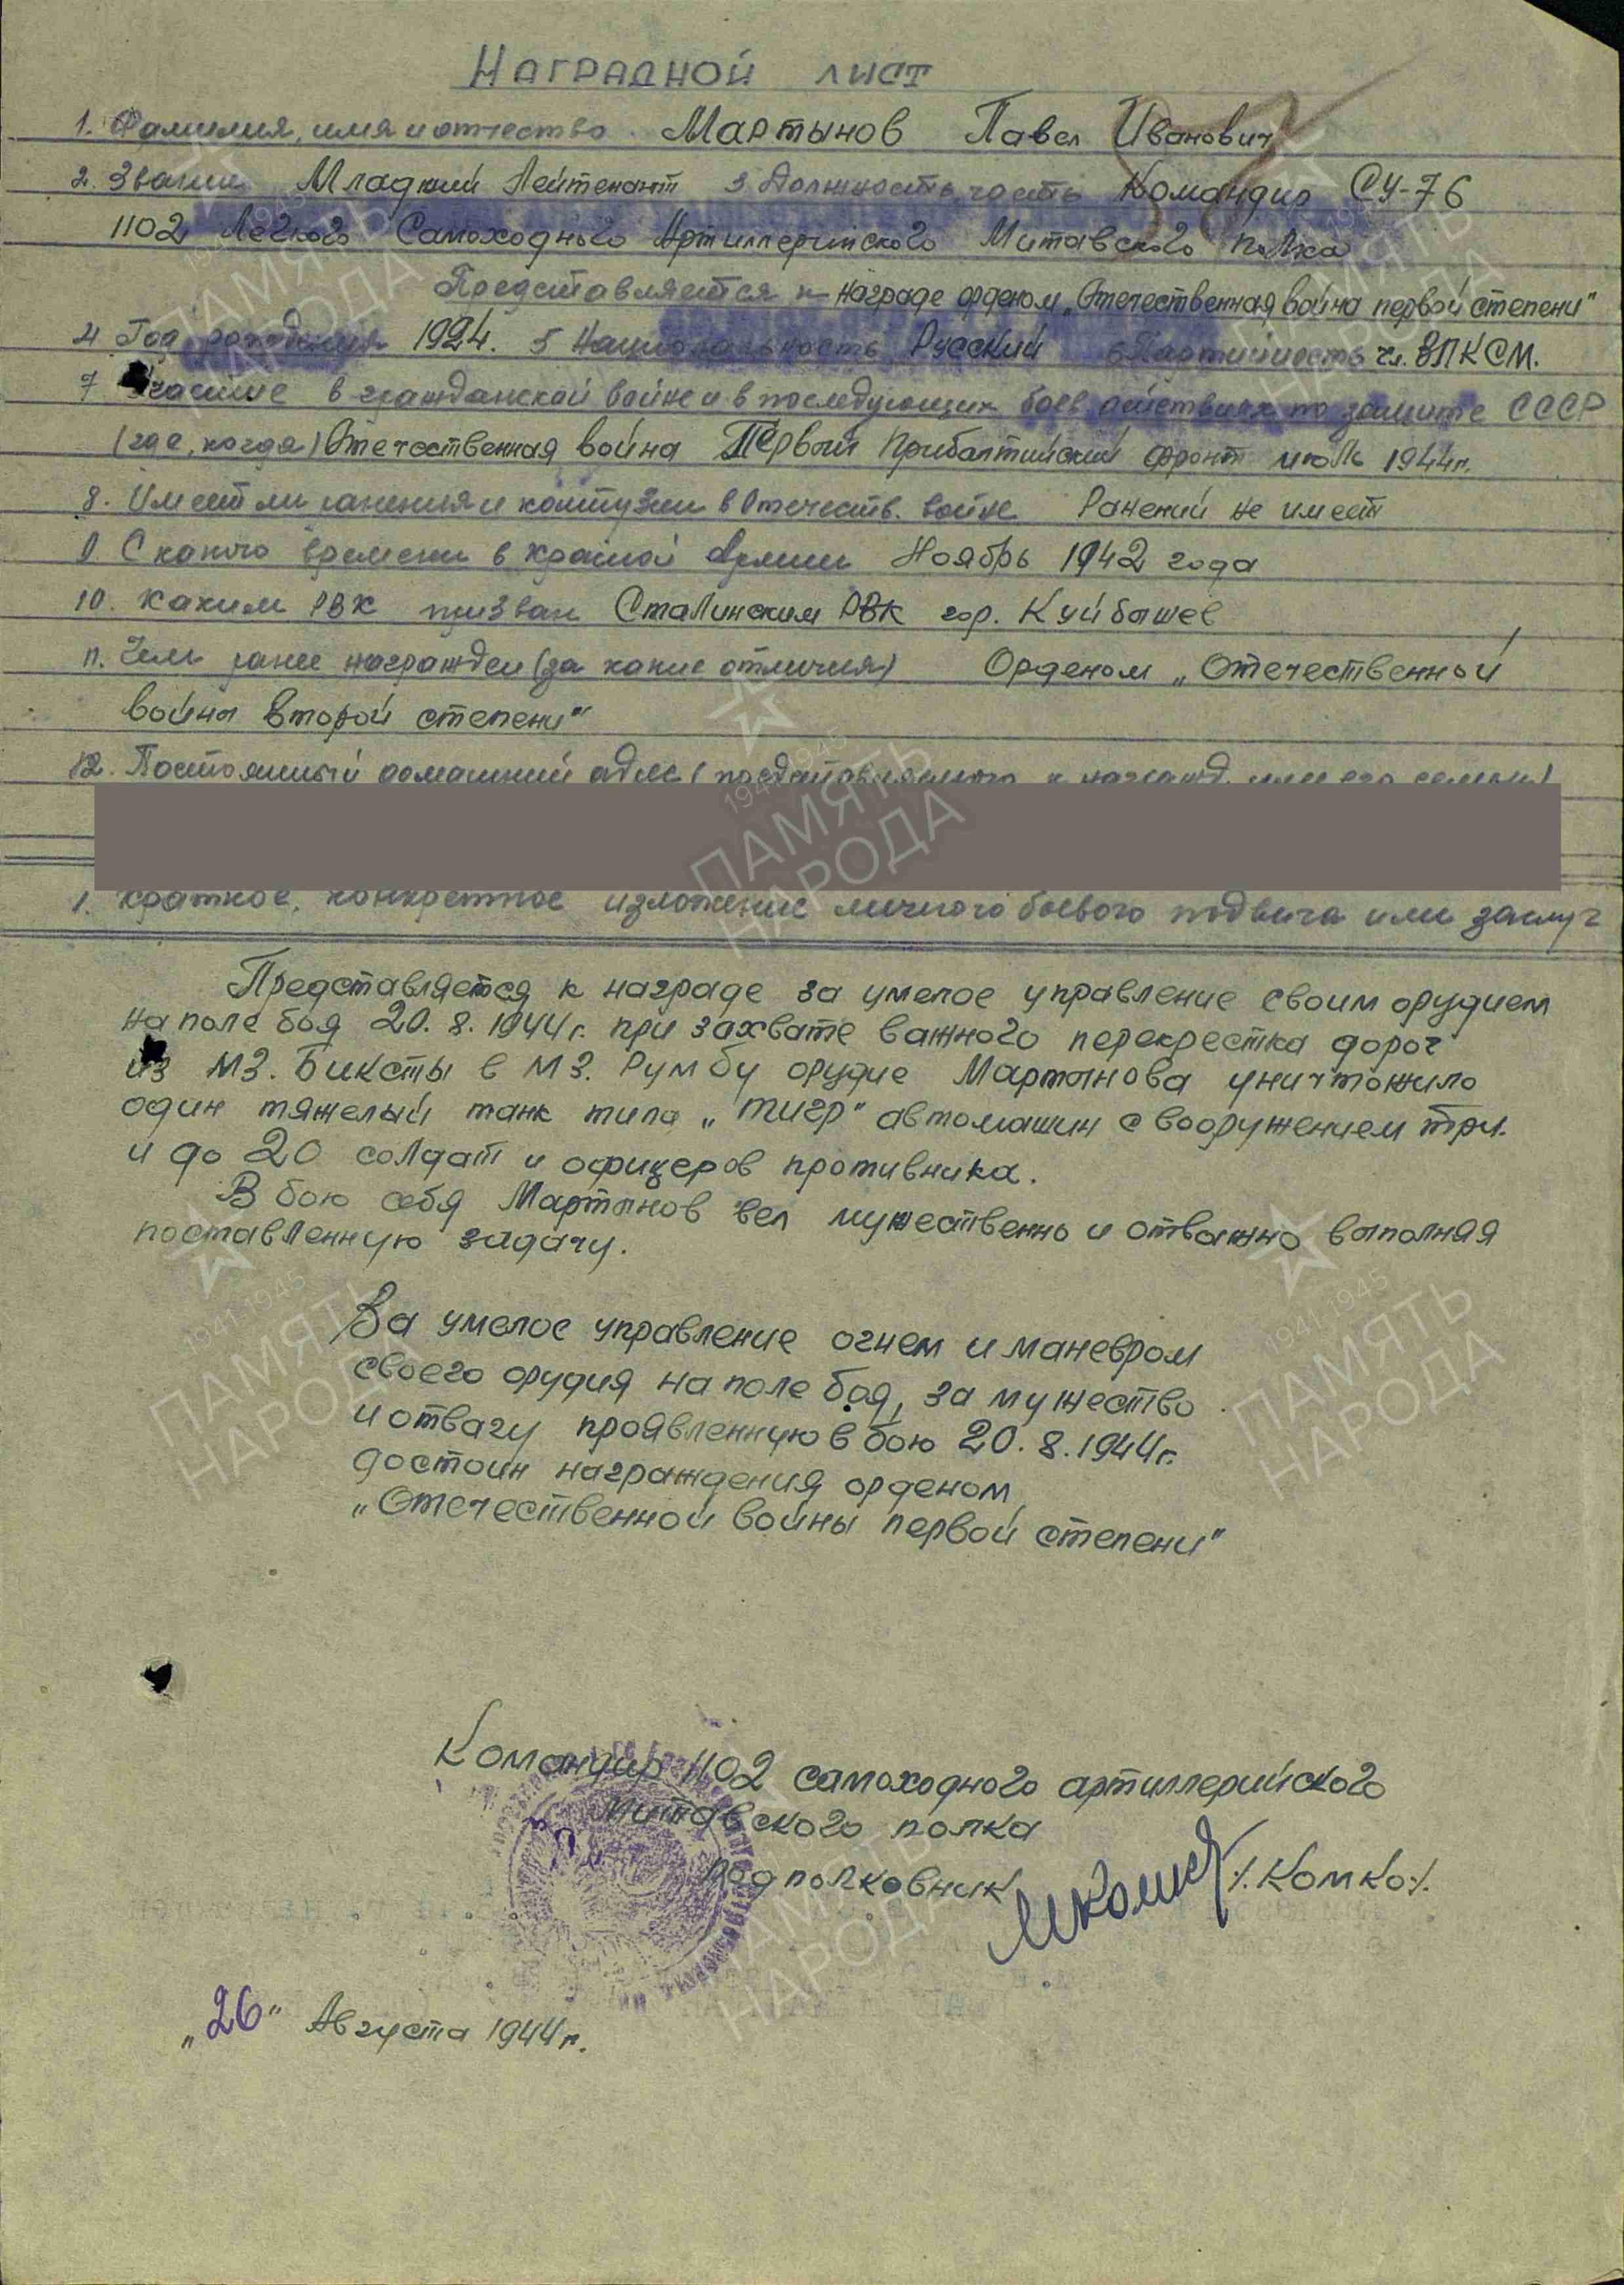 Наградной лист
1. Фамилия, имя и отчество Мартынов Павел Иванович
2. Звание Младший Лейтенант 3 Должность, часть Командир СУ-76
1102 Легкого Самоходного Артиллерийского Митавского полка
Представляется к награде орденом „Отечественная война первой степени"
4 Год рождения 1924. 5 Национальность Русский 6 Партийность чл. ВЛКСМ.
7 Участие в гражданской войне и в последующих боев. действиях по защите СССР
(где, когда) Отечественная война Первый Прибалтийский фронт июль 1944г.
8. Имеет ли ранения и контузии в Отечеств. войне Ранений не имеет
9. С какого времени в Красной Армии Ноябрь 1942 года
10. Каким РВК призван Сталинским РВК гор. Куйбышев
11. Чем ранее награжден (за какие отличия) Орденом „Отечественной
войны второй степени"
12. Постоянный домашний адрес (представляемого к награжд. или его семьи)
1. Краткое, конкретное изложение личного боевого подвига или заслуг
Представляется к награде за умелое управление своим орудием
на поле боя 20.8.1944г. при захвате важного перекрестка дорог
из мз. Биксты в мз. Румбу орудие Мартынова уничтожило
один тяжелый танк типа „тигр" автомашин с вооружением три.
и до 20 солдат и офицеров противника.
В бою себя Мартынов вел мужественно и отважно выполняя
поставленную задачу.
За умелое управление огнем и маневром
своего орудия на поле боя, за мужество
и отвагу проявленную в бою 20.8.1944г.
достоин награждения орденом
„Отечественной войны первой степени"
Командир 1102 самоходного артиллерийского
Митавского полка
подполковник /. Комко./.
„26" Августа 1944г.
1941-1945
ПАМЯТЬ
НАРОДА